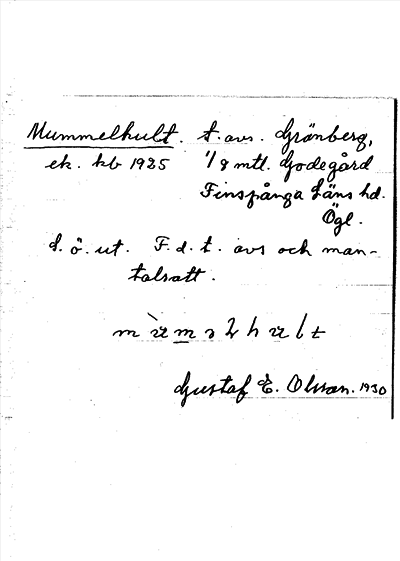 Mummelhult. t. avs. Gränberg,
ek. kb 1925 1/8 mtl. Godegård
Finspånga Läns hd.
Ögl.
d. ö. ut. F. d. t. avs och man-
talsatt.
Gustaf E. Olsson. 1930